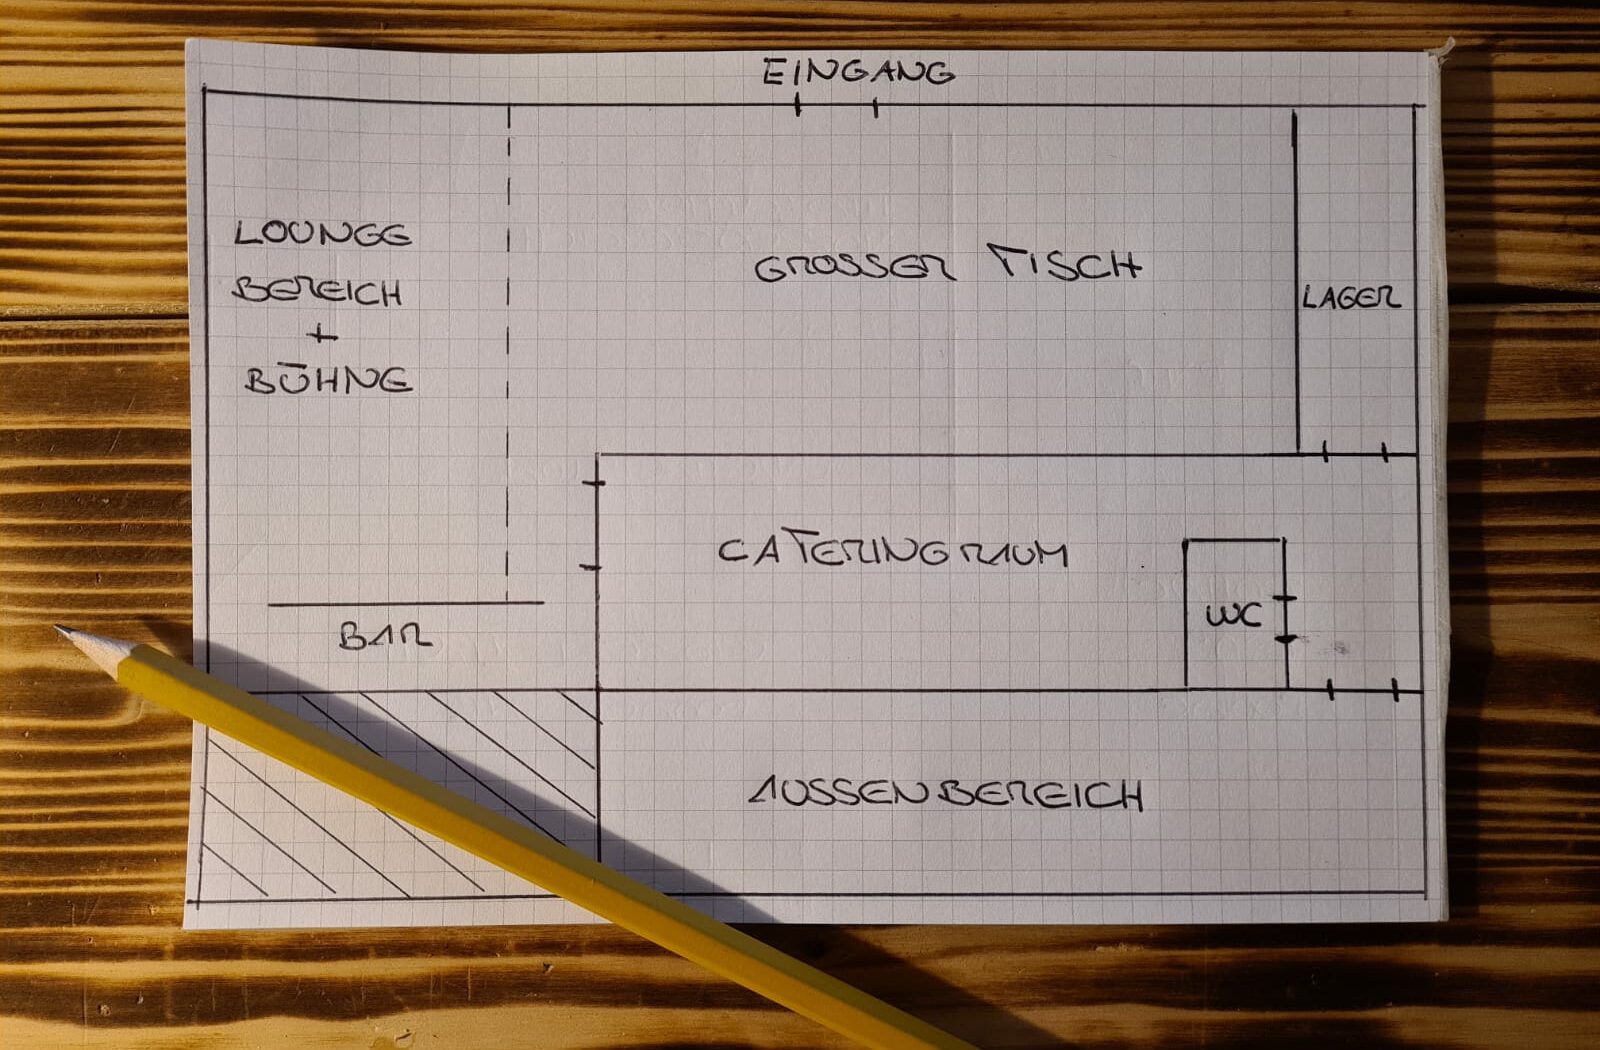 EINGANG
LOUNGE
BEREICH
+
BÜHNE
GROSSER TISCH
LAGER
CATERINGRAUM
WC
BAR
AUSSENBEREICH